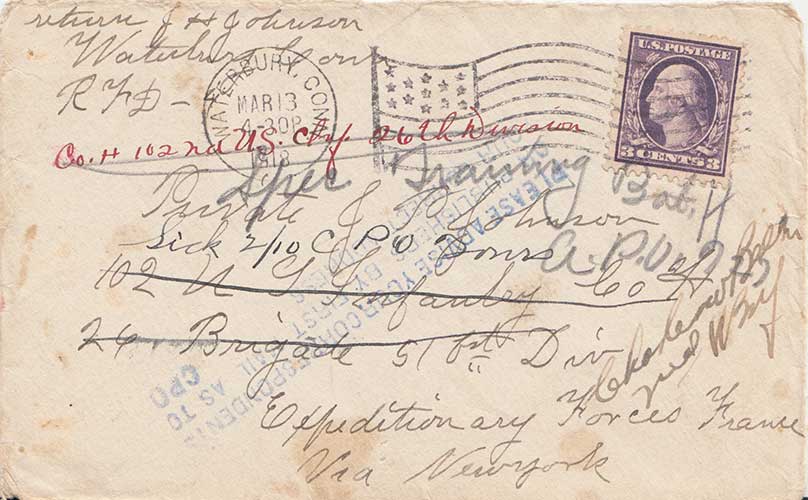 return J H Johnson
Waterbury Conn
RFD-
WATERBURY, CONN.
MAR 13
4-30P
1918
U.S. POSTAGE
3 CENTS 3
Co. H 102nd U.S. Inf 26th Division
Spec Training
Bat, H
A.P.O. 725
Private J P Johnson
Sick 2/10 C P O Tours
102 U S Infantry Co H
26 Brigade 51 bst Div
Expeditionary Forces France
Via Newyork
PLEASE ADVISE YOUR CORRESPONDENTS
PUBLISHERS BY FIRST
AS TO
CPO